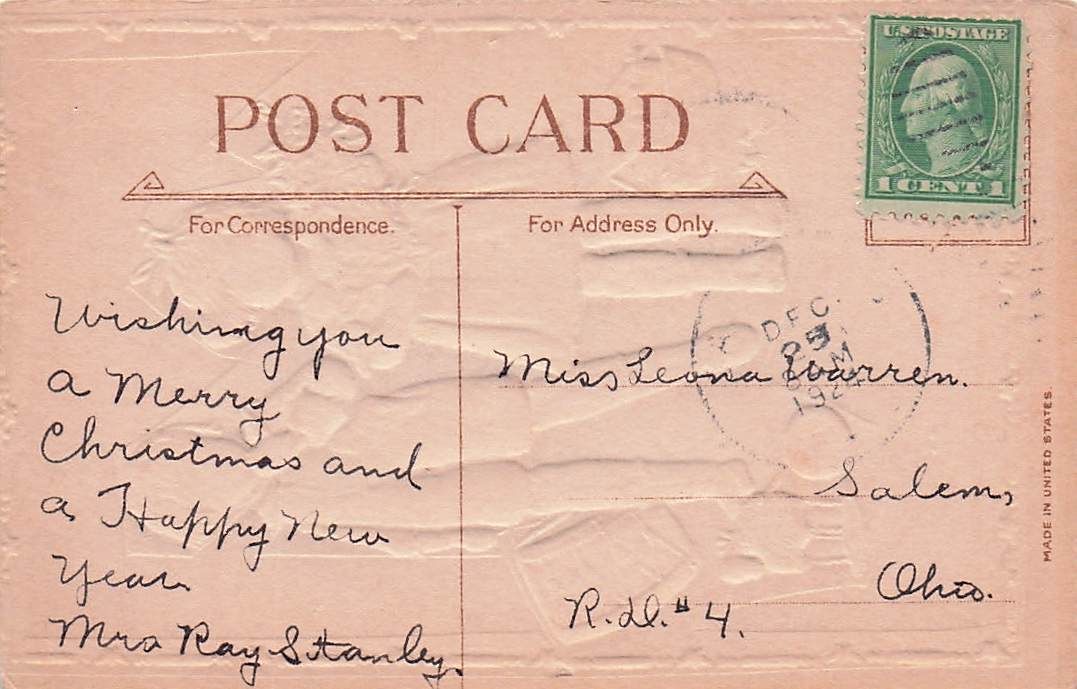 POST CARD
U.S. POSTAGE
1 CENT 1
For Correspondence.
For Address Only.
DEC
25
M
192
Wishing you
a Merry
Christmas and
a Happy New
Year
Mrs Ray Stanley.
Miss Leona Warren.
Salem,
Ohio.
R.D. #4.
MADE IN UNITED STATES.